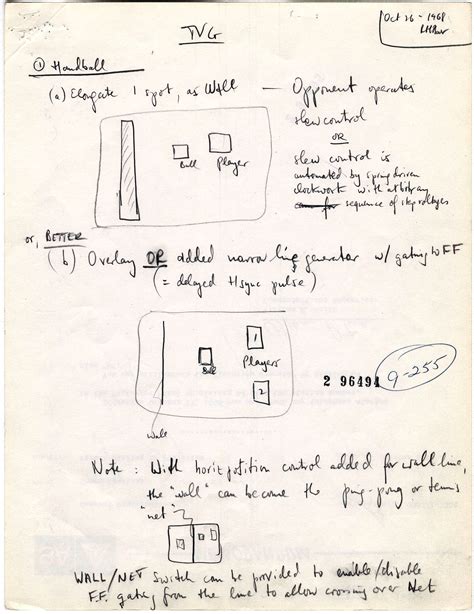 Oct 26 - 1968
RHBaer
TVG
① Handball
(a) Elongate 1 spot, as Wall — Opponent operates
slew control
OR
slew control is
automated by spring driven
clockwork with arbitrary
sequence of step voltages
Ball
Player
or, BETTER
(b) Overlay OR added narrow line generator w/ gating by FF
(= delayed Hsync pulse)
1
Ball
Players
2
Wall
2 96494
9-255
Note: With horiz position control added for wall line,
the "wall" can become the ping-pong or tennis
"net"
WALL/NET switch can be provided to enable/disable
F.F. gating from the line to allow crossing over Net